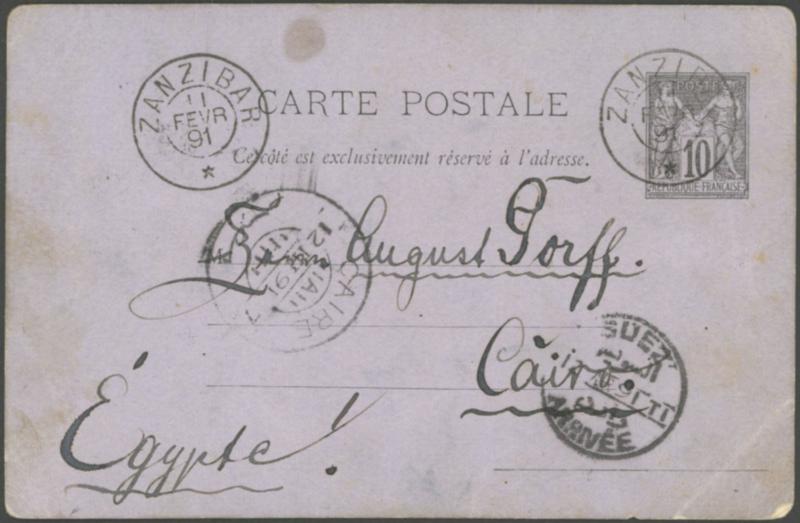 ZANZIBAR
11
FEVR
91
CARTE POSTALE
Ce côté est exclusivement réservé à l'adresse.
ZANZIB
91
POSTE
10
RÉPUBLIQUE FRANÇAISE
August Torff.
CAIRE
12
91
Cairo.
SUEZ
ARRIVÉE
Égypte!